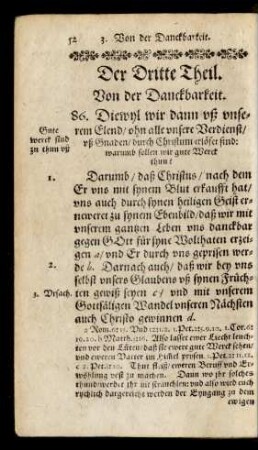 52 3. Von der Danckbarkeit.
Der Dritte Theil.
Von der Danckbarkeit.
86. Diewyl wir dann uß unse-
rem Elend / ohn alle unsere Verdienst /
uß Gnaden / durch Christum erlöset sind:
warumb sollen wir gute Werck
thun?
Gute
werck sind
zu thun uß
1. Darumb / daß Christus / nach dem
Er uns mit synem Blut erkaufft hat /
uns auch durch synen heiligen Geist er-
neweret zu synem Ebenbild / daß wir mit
unserem gantzen Leben uns danckbar
gegen GOtt für syne Wolthaten erzei-
gen a / und Er durch uns gepriesen wer-
2. de b. Darnach auch / daß wir bey uns
selbst unsers Glaubens uß synen Früch-
3. Ursach. ten gewiß seyen c / und mit unserem
Gottsäligen Wandel unseren Nächsten
auch Christo gewinnen d.
a Rom. 1. Pet. 1. Cor.
b Matth. Also lasset ewer Liecht leuch-
ten vor den Lüten / daß sie ewere gute Werck sehen /
und eweren Vatter im Himel prysen. 1. Pet.
c 2. Pet. Thut flyß / eweren Beruff und Er-
wöhlung vest zu machen. Dann wo ihr solches
thund / werdet ihr nit straucheln: und also wird euch
rychlich dargereicht werden der Eyngang zu dem
ewigen